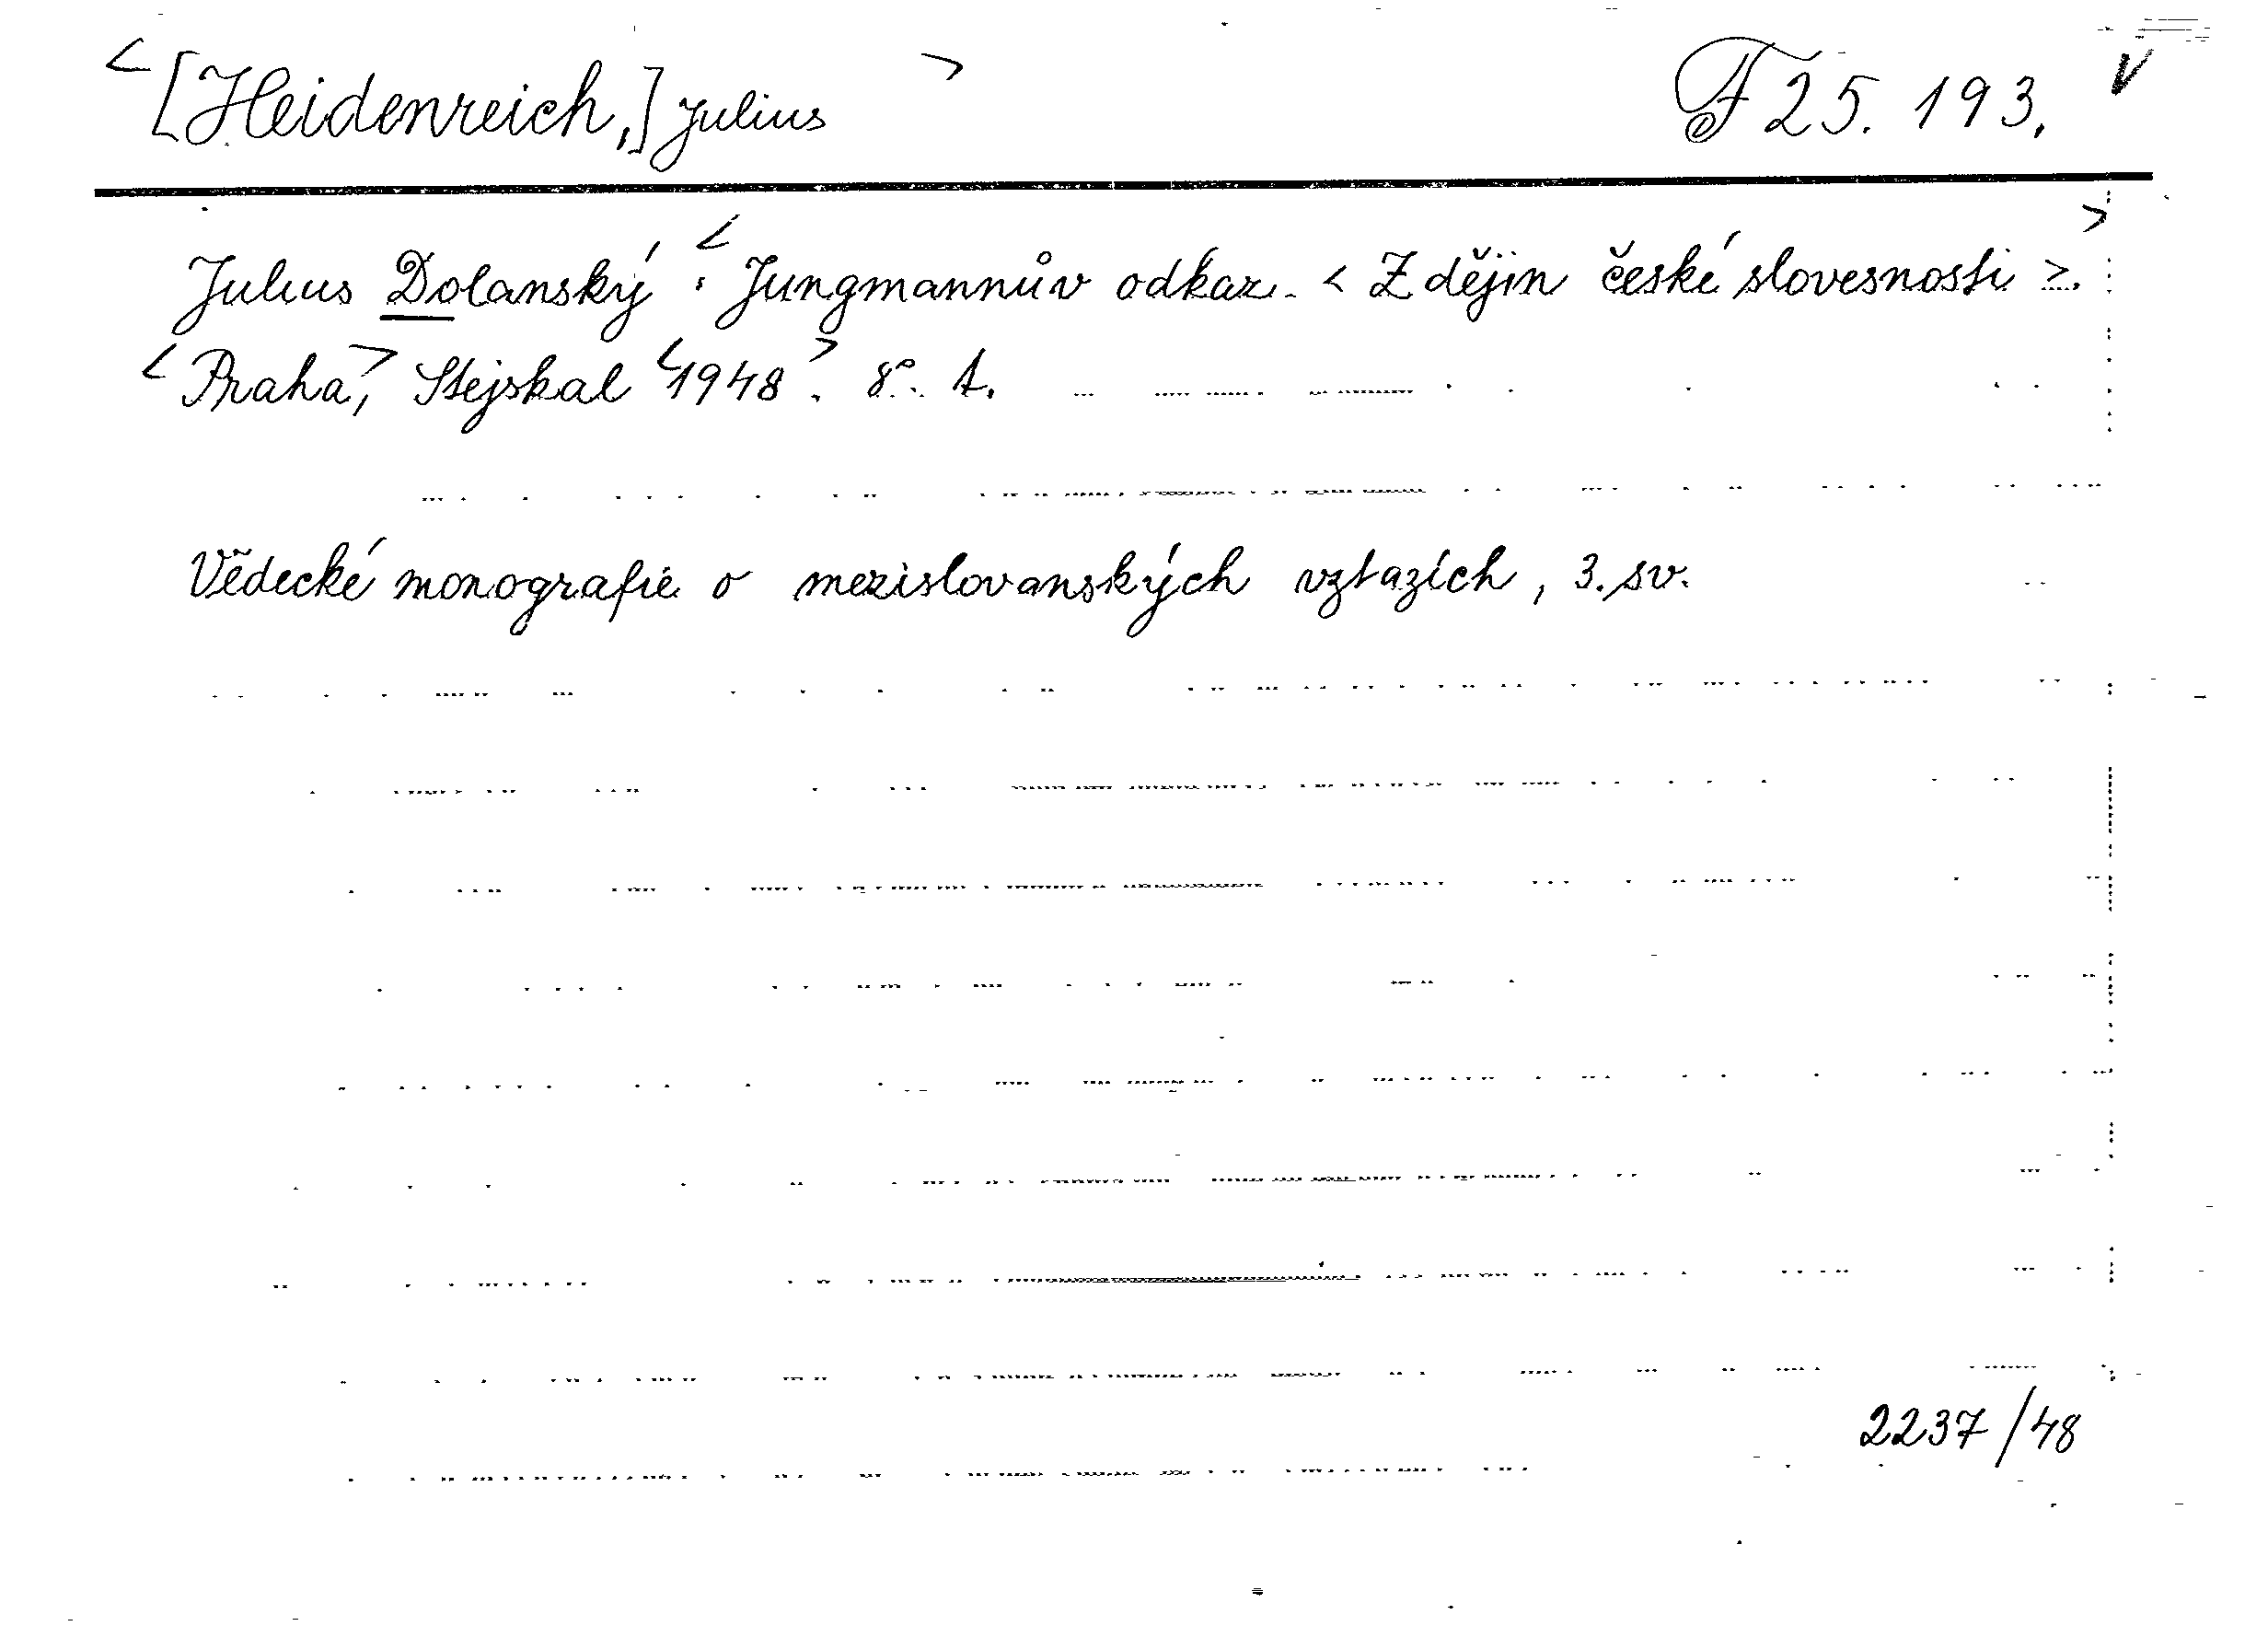 <[Heidenreich,] Julius> F 25. 193. V
Julius Dolanský: <Jungmannův odkaz. <Z dějin české slovesnosti>.>
<Praha>, Stejskal <1948>. 8°. 1.
Vědecké monografie o mezislovanských vztazích, 3. sv.
2237/48